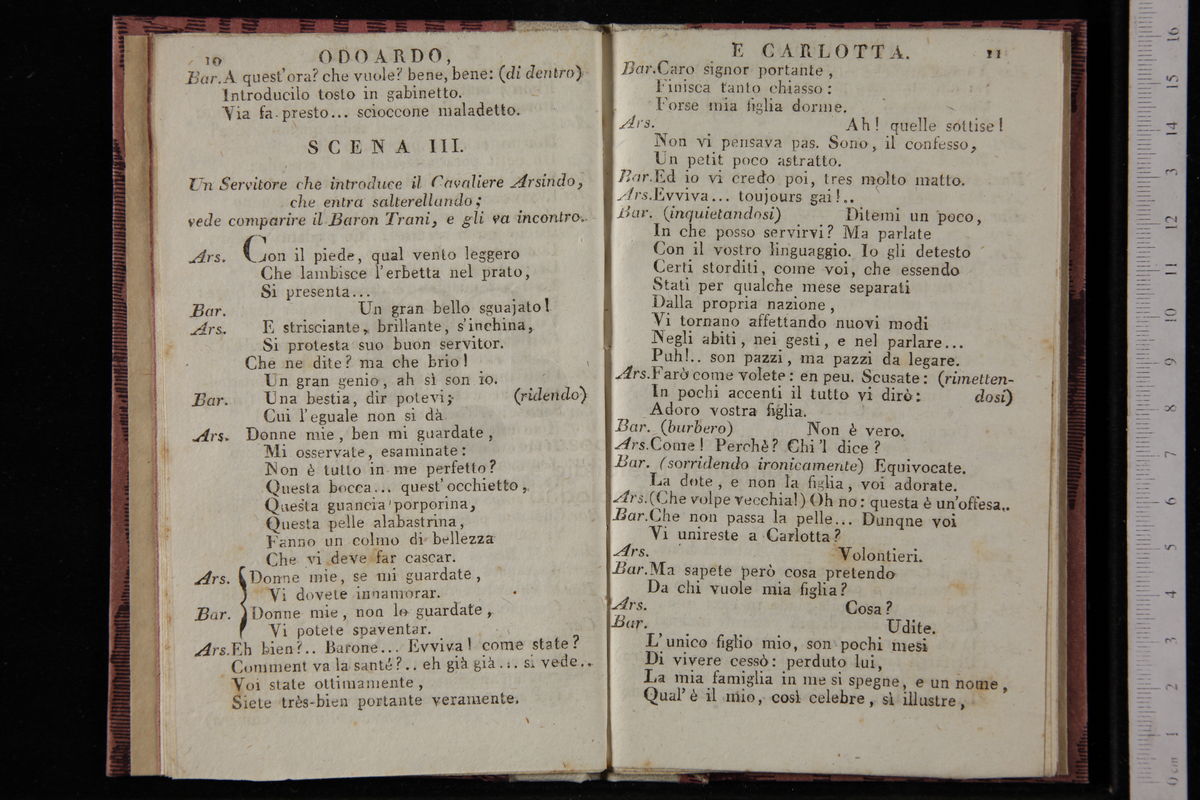 10 ODOARDO,
Bar. A quest'ora? che vuole? bene, bene: (di dentro)
Introducilo tosto in gabinetto.
Via fa presto... scioccone maladetto.
SCENA III.
Un Servitore che introduce il Cavaliere Arsindo,
che entra salterellando;
vede comparire il Baron Trani, e gli va incontro.
Ars. Con il piede, qual vento leggero
Che lambisce l'erbetta nel prato,
Si presenta...
Bar. Un gran bello sguajato!
Ars. E strisciante, brillante, s'inchina,
Si protesta suo buon servitor.
Che ne dite? ma che brio!
Un gran genio, ah sì son io.
Bar. Una bestia, dir potevi; (ridendo)
Cui l'eguale non si dà
Ars. Donne mie, ben mi guardate,
Mi osservate, esaminate:
Non è tutto in me perfetto?
Questa bocca... quest'occhietto,
Questa guancia porporina,
Questa pelle alabastrina,
Fanno un colmo di bellezza
Che vi deve far cascar.
Ars. Donne mie, se mi guardate,
Vi dovete innamorar.
Bar. Donne mie, non lo guardate,
Vi potete spaventar.
Ars. Eh bien?.. Barone... Evviva! come state?
Comment va la santé?.. eh già già... si vede..
Voi state ottimamente,
Siete très-bien portante veramente.
E CARLOTTA. 11
Bar. Caro signor portante,
Finisca tanto chiasso:
Forse mia figlia dorme.
Ars. Ah! quelle sottise!
Non vi pensava pas. Sono, il confesso,
Un petit poco astratto.
Bar. Ed io vi credo poi, tres molto matto.
Ars. Evviva... toujours gai!..
Bar. (inquietandosi) Ditemi un poco,
In che posso servirvi? Ma parlate
Con il vostro linguaggio. Io gli detesto
Certi storditi, come voi, che essendo
Stati per qualche mese separati
Dalla propria nazione,
Vi tornano affettando nuovi modi
Negli abiti, nei gesti, e nel parlare...
Puh!.. son pazzi, ma pazzi da legare.
Ars. Farò come volete: en peu. Scusate: (rimetten-
In pochi accenti il tutto vi dirò: dosi)
Adoro vostra figlia.
Bar. (burbero) Non è vero.
Ars. Come! Perchè? Chi'l dice?
Bar. (sorridendo ironicamente) Equivocate.
La dote, e non la figlia, voi adorate.
Ars. (Che volpe vecchia!) Oh no: questa è un'offesa..
Bar. Che non passa la pelle... Dunqne voi
Vi unireste a Carlotta?
Ars. Volontieri.
Bar. Ma sapete però cosa pretendo
Da chi vuole mia figlia?
Ars. Cosa?
Bar. Udite.
L'unico figlio mio, son pochi mesi
Di vivere cessò: perduto lui,
La mia famiglia in me si spegne, e un nome,
Qual'è il mio, così celebre, sì illustre,
0 cm 1 2 3 4 5 6 7 8 9 10 11 12 13 14 15 16